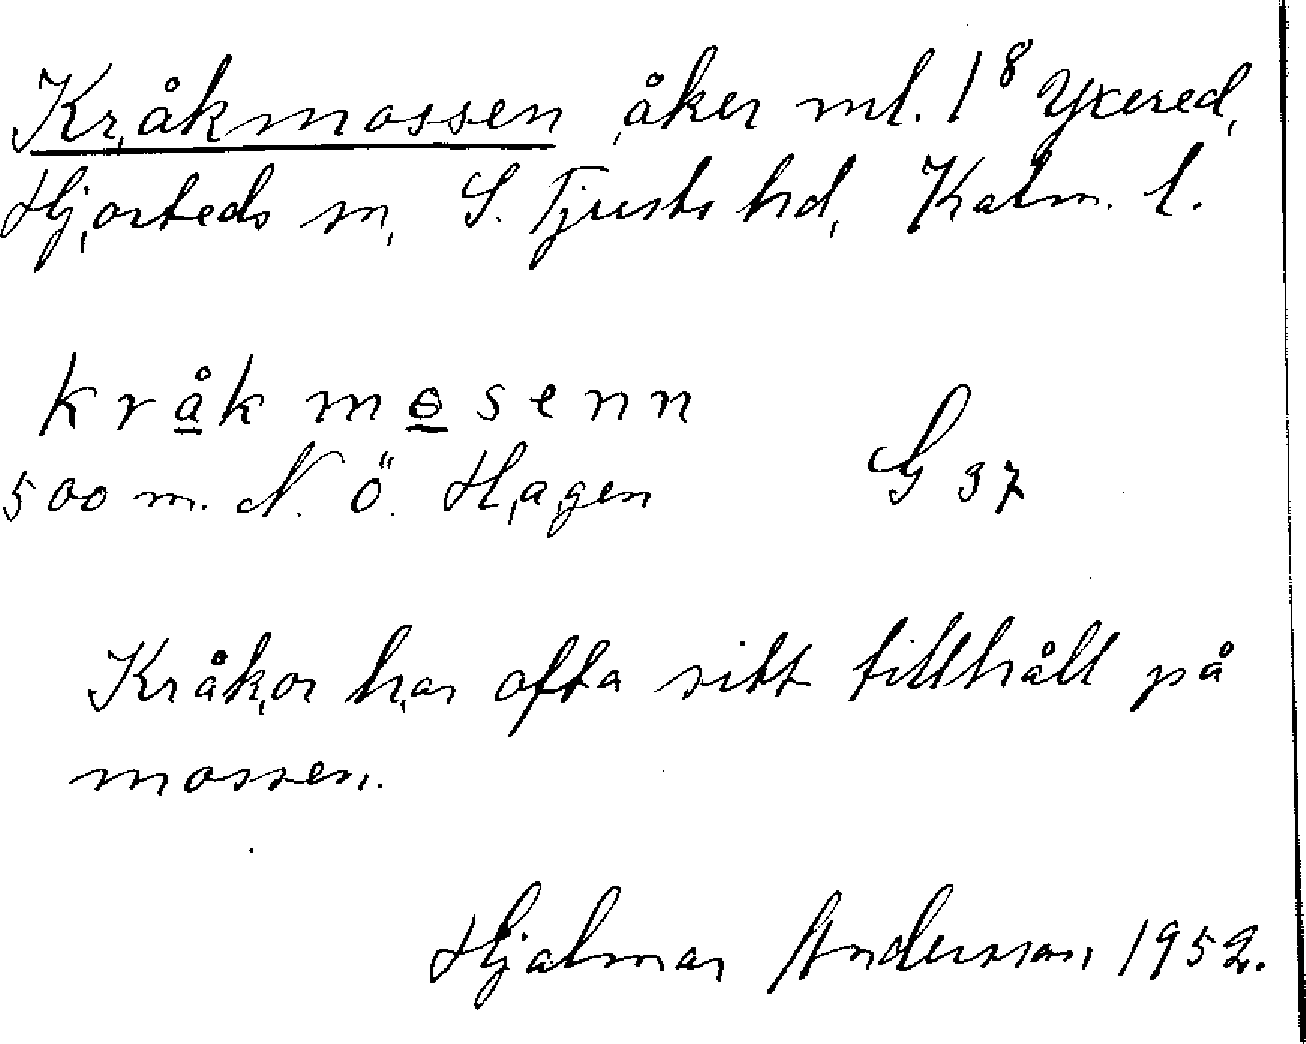 Kråkmossen åker ml. 1⁸ Yxered,
Hjorteds sn, S. Tjusts hd, Kalm. l.
kråkmɵsenn
500 m. N. Ö. Hagen G 37
Kråkor har ofta sitt tillhåll på
mossen.
Hjalmar Andersson 1952.